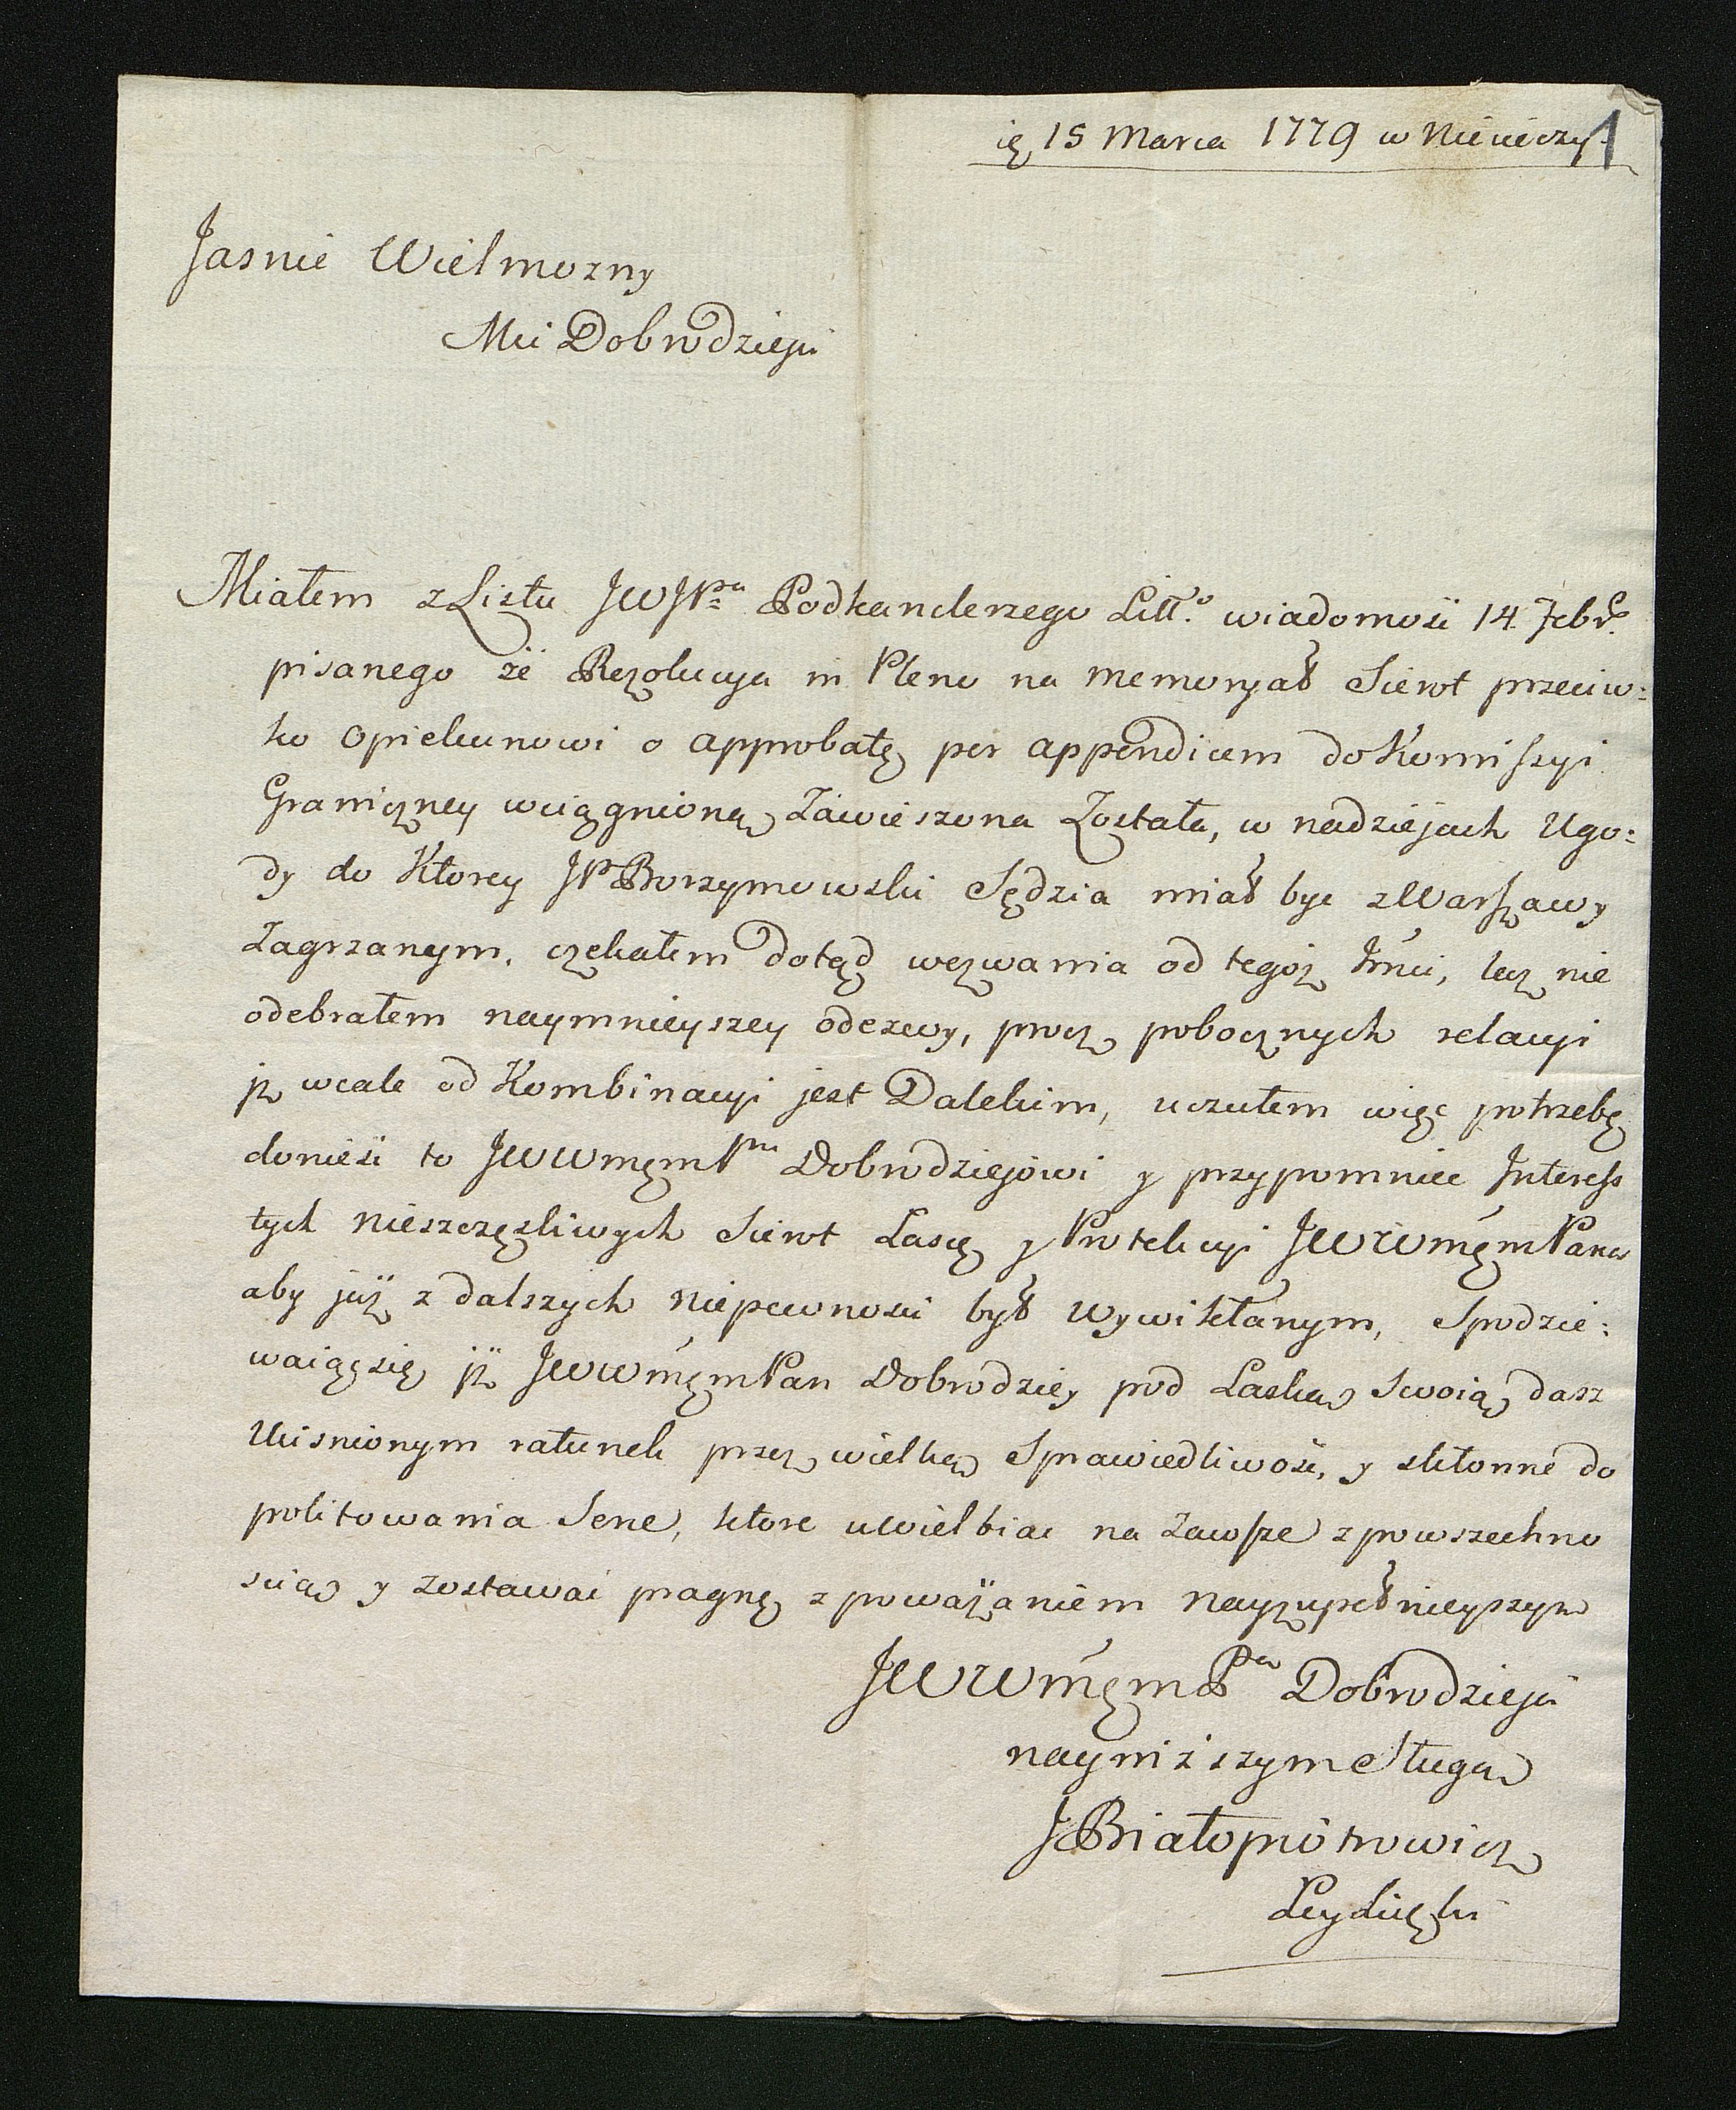 15 Marca 1779 w Niecieczy
1
Jasnie Wielmozny
Mci Dobrodzieju
Miałem z Listu JWJPa Podkanclerzego Litt.º wiadomość 14 Febr.
pisanego że Rezolucya in Pleno na memoryał Sierot przeciw:
ko opiekunowi o approbatę per appendicem do Komissyi
Graniczney wciągnioną zawieszona została, w nadziejach Ugo:
dy do Ktorey JP Borzymowski Sędzia miał byc z Warszawy
zagrzanym, czekałem dotąd wezwania od tegoż Jmci, lecz nie
odebrałem naymnieyszey odezwy, procz pobocznych relacyi
iż wcale od Kombinacyi jest Dalekim, uczułem więc potrzebę
donieść to JWWmęmPnu Dobrodziejowi y przypomniec Interess
tych nieszczęsliwych Sierot Łascę y Protekcyi JWWmęmPana
aby już z dalszych niepewnosci był wywikłanym, Spodzie:
waiąc się iż JWWmęmPan Dobrodziey pod Laską Swoią dasz
Ucisnionym ratunek przez wielką Sprawiedliwość, y skłonne do
politowania Serce, ktore uwielbiac na zawsze z powszechno
scią y zostawać pragnę z poważaniem nayzupełnieyszym
JWWmęmPa Dobrodzieja
nayniższym Sługą
J Białopiotrowicz